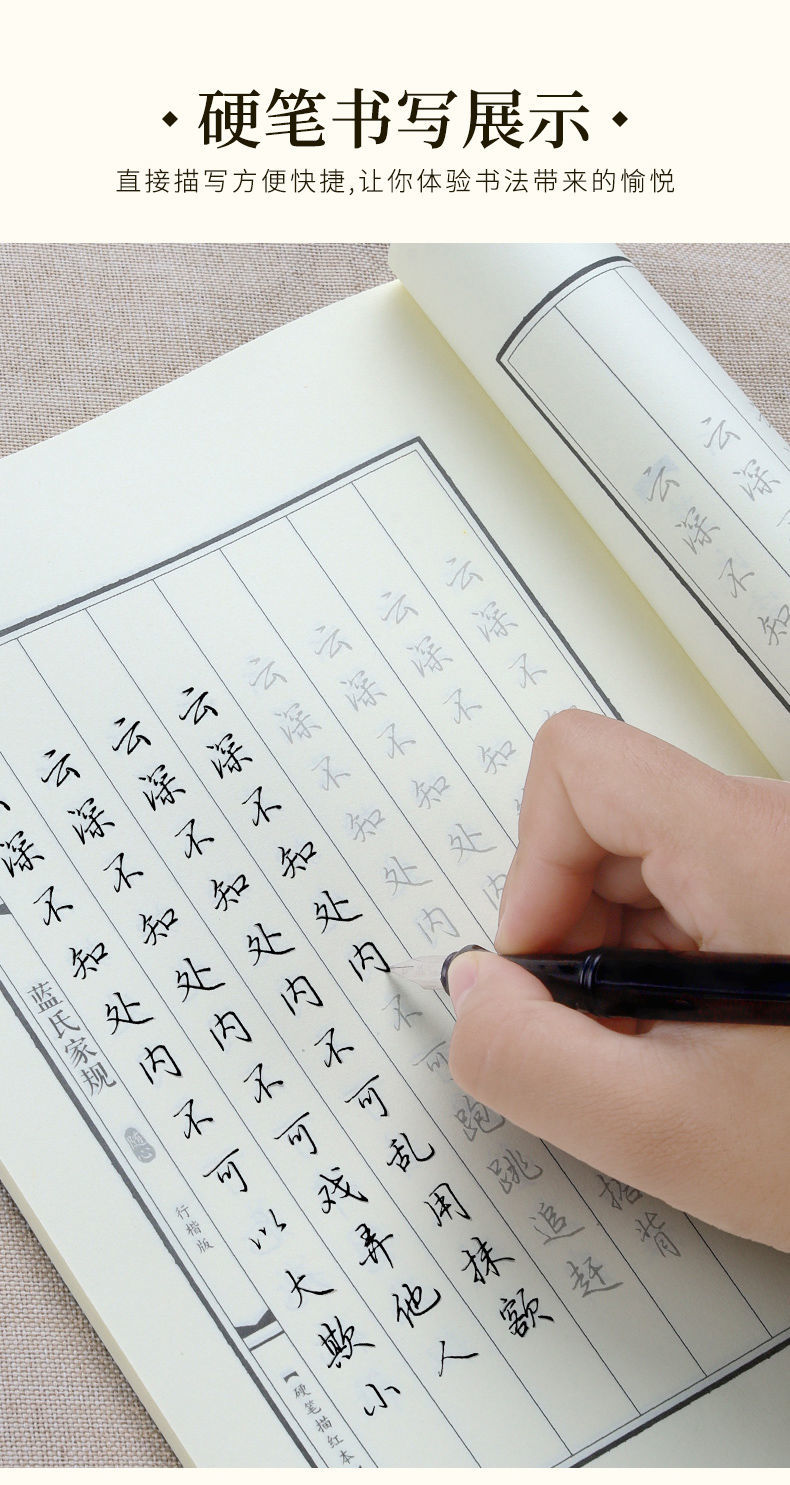 硬笔书写展示
直接描写方便快捷,让你体验书法带来的愉悦
云深不
云深不知
云深不知
云深不知
云深不知处内
云深不知处内背
云深不知处内不可跑跳追赶
云深不知处内不可乱用抹额
云深不知处内不可戏弄他人
深不知处内不可以大欺小
蓝氏家规
随心
行楷版
【硬笔描红本